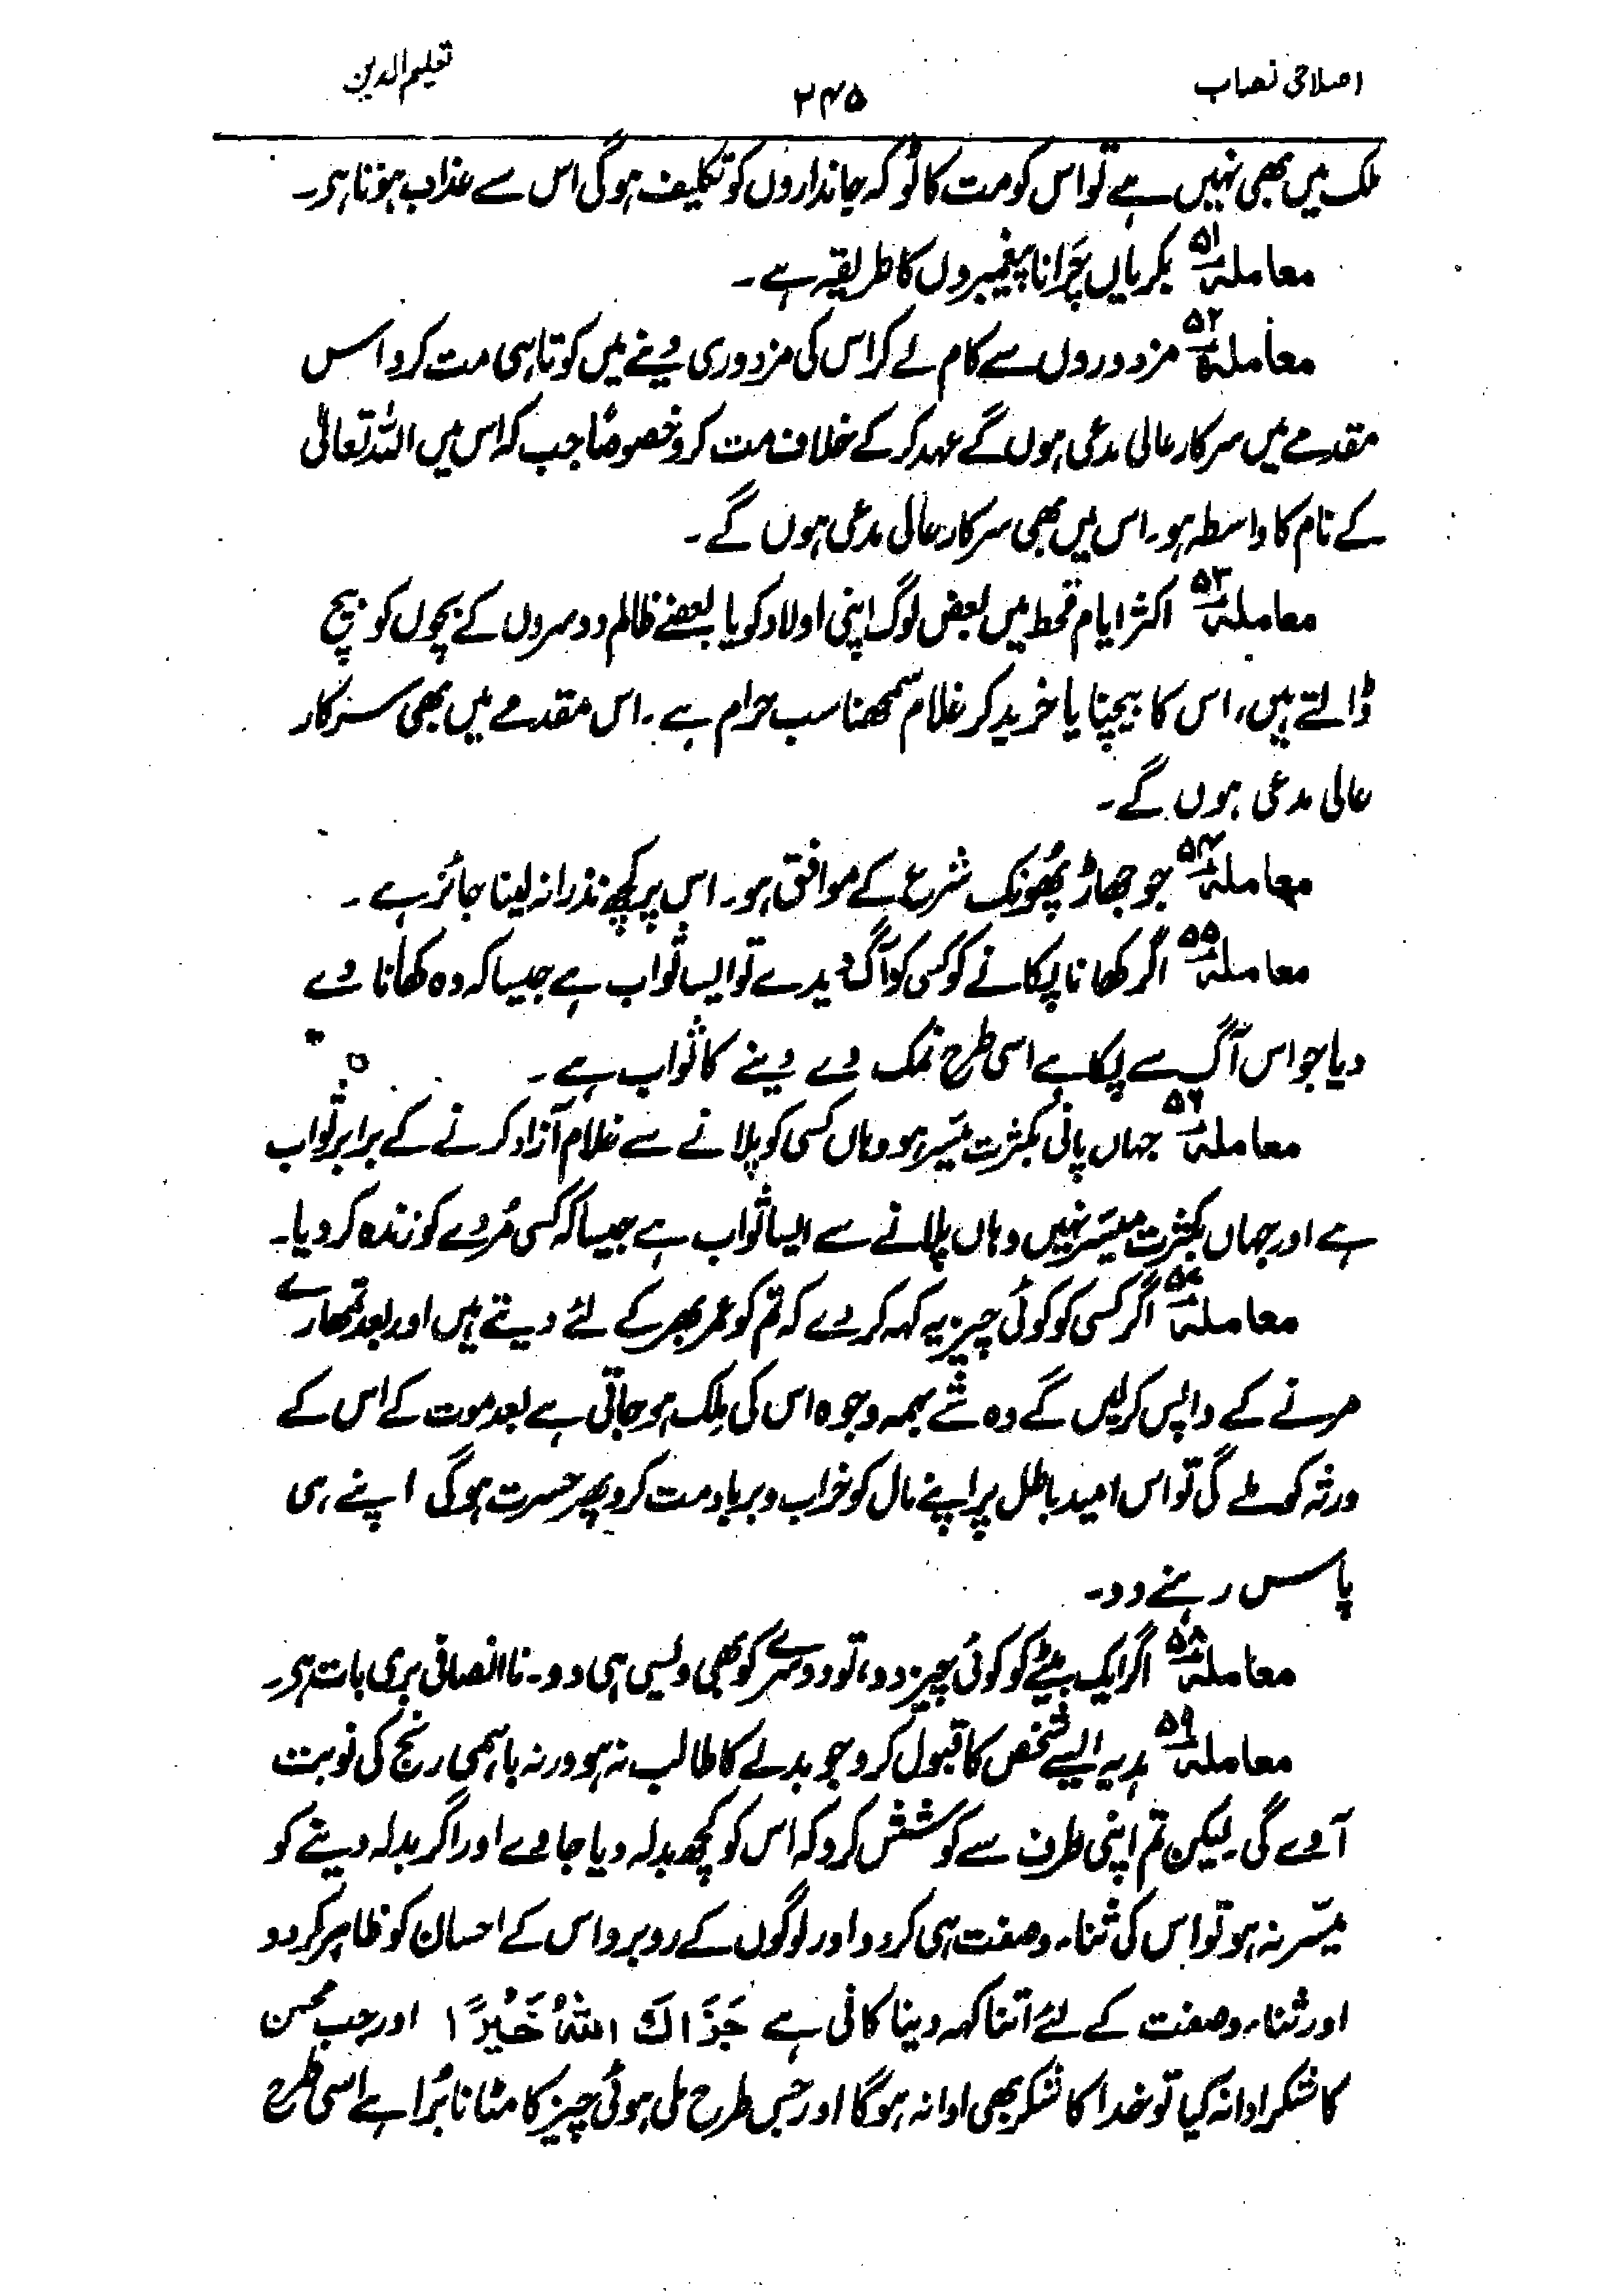 اصلاحی نصاب
۲۴۵
تعلیم الدین
ملک میں بھی نہیں ہے تو اس کو مت کاٹو کہ جانداروں کو تکلیف ہوگی اس سے عذاب ہوتا ہے۔
معاملہ ۵۱ بکریاں چَرانا پیغمبروں کا طریقہ ہے۔
معاملہ ۵۲ مزدوروں سے کام لے کر اس کی مزدوری دینے میں کوتاہی مت کرو اس
مقدمے میں سرکار عالی مدعی ہوں گے عہد کر کے خلاف مت کرو خصوصًا جب کہ اس میں اللہ تعالیٰ
کے نام کا واسطہ ہو۔ اس میں بھی سرکار عالی مدعی ہوں گے۔
معاملہ ۵۳ اکثر ایام قحط میں بعض لوگ اپنی اولاد کو یا بعضے ظالم دوسروں کے بچوں کو بیچ
ڈالتے ہیں، اس کا بیچنا یا خرید کر غلام سمجھنا سب حرام ہے۔ اس مقدمے میں بھی سرکار
عالی مدعی ہوں گے۔
معاملہ ۵۴ جو جھاڑ پُھونک شرع کے موافق ہو۔ اس پر کچھ نذرانہ لینا جائز ہے۔
معاملہ ۵۵ اگر کھانا پکانے کو کسی کو آگ دیدے تو ایسا ثواب ہے جیسا کہ وہ کھانا دے
دیا جو اس آگ سے پکا ہے اسی طرح نمک دے دینے کا ثواب ہے۔
معاملہ ۵۶ جہاں پانی بکثرت میسّر ہو وہاں کسی کو پلانے سے غلام آزاد کرنے کے برابر ثواب
ہے اور جہاں بکثرت میسّر نہیں وہاں پلانے سے ایسا ثواب ہے جیسا کہ کسی مُردے کو زندہ کر دیا۔
معاملہ ۵۷ اگر کسی کو کوئی چیز یہ کہہ کر دے کہ تم کو عمر بھر کے لئے دیتے ہیں اور بعد تمھارے
مرنے کے واپس کرلیں گے وہ شے بہمہ وجوہ اس کی مِلک ہو جاتی ہے بعد موت کے اس کے
ورثہ کو ملے گی تو اس امید باطل پر اپنے مال کو خراب و برباد مت کرو پھر حسرت ہوگی اپنے ہی
پاس رہنے دو۔
معاملہ ۵۸ اگر ایک بیٹے کو کوئی چیز دو، تو دوسرے کو بھی ویسی ہی دو۔ ناانصافی بری بات ہے۔
معاملہ ۵۹ ہدیہ ایسے شخص کا قبول کرو جو بدلے کا طالب نہ ہو ورنہ باہمی رنج کی نوبت
آوے گی۔ لیکن تم اپنی طرف سے کوشش کرو کہ اس کو کچھ بدلہ دیا جاوے اور اگر بدلہ دینے کو
میسّر نہ ہو تو اس کی ثناء وصفت ہی کردو اور لوگوں کے روبرو اس کے احسان کو ظاہر کر دو
اور ثناء وصفت کے لئے اتنا کہہ دینا کافی ہے جَزَاكَ اللّٰهُ خَيْرًا اور جب محسن
کا شکر ادا نہ کیا تو خدا کا شکر بھی ادا نہ ہوگا اور جس طرح ملی ہوئی چیز کا مٹانا بُرا ہے اسی طرح